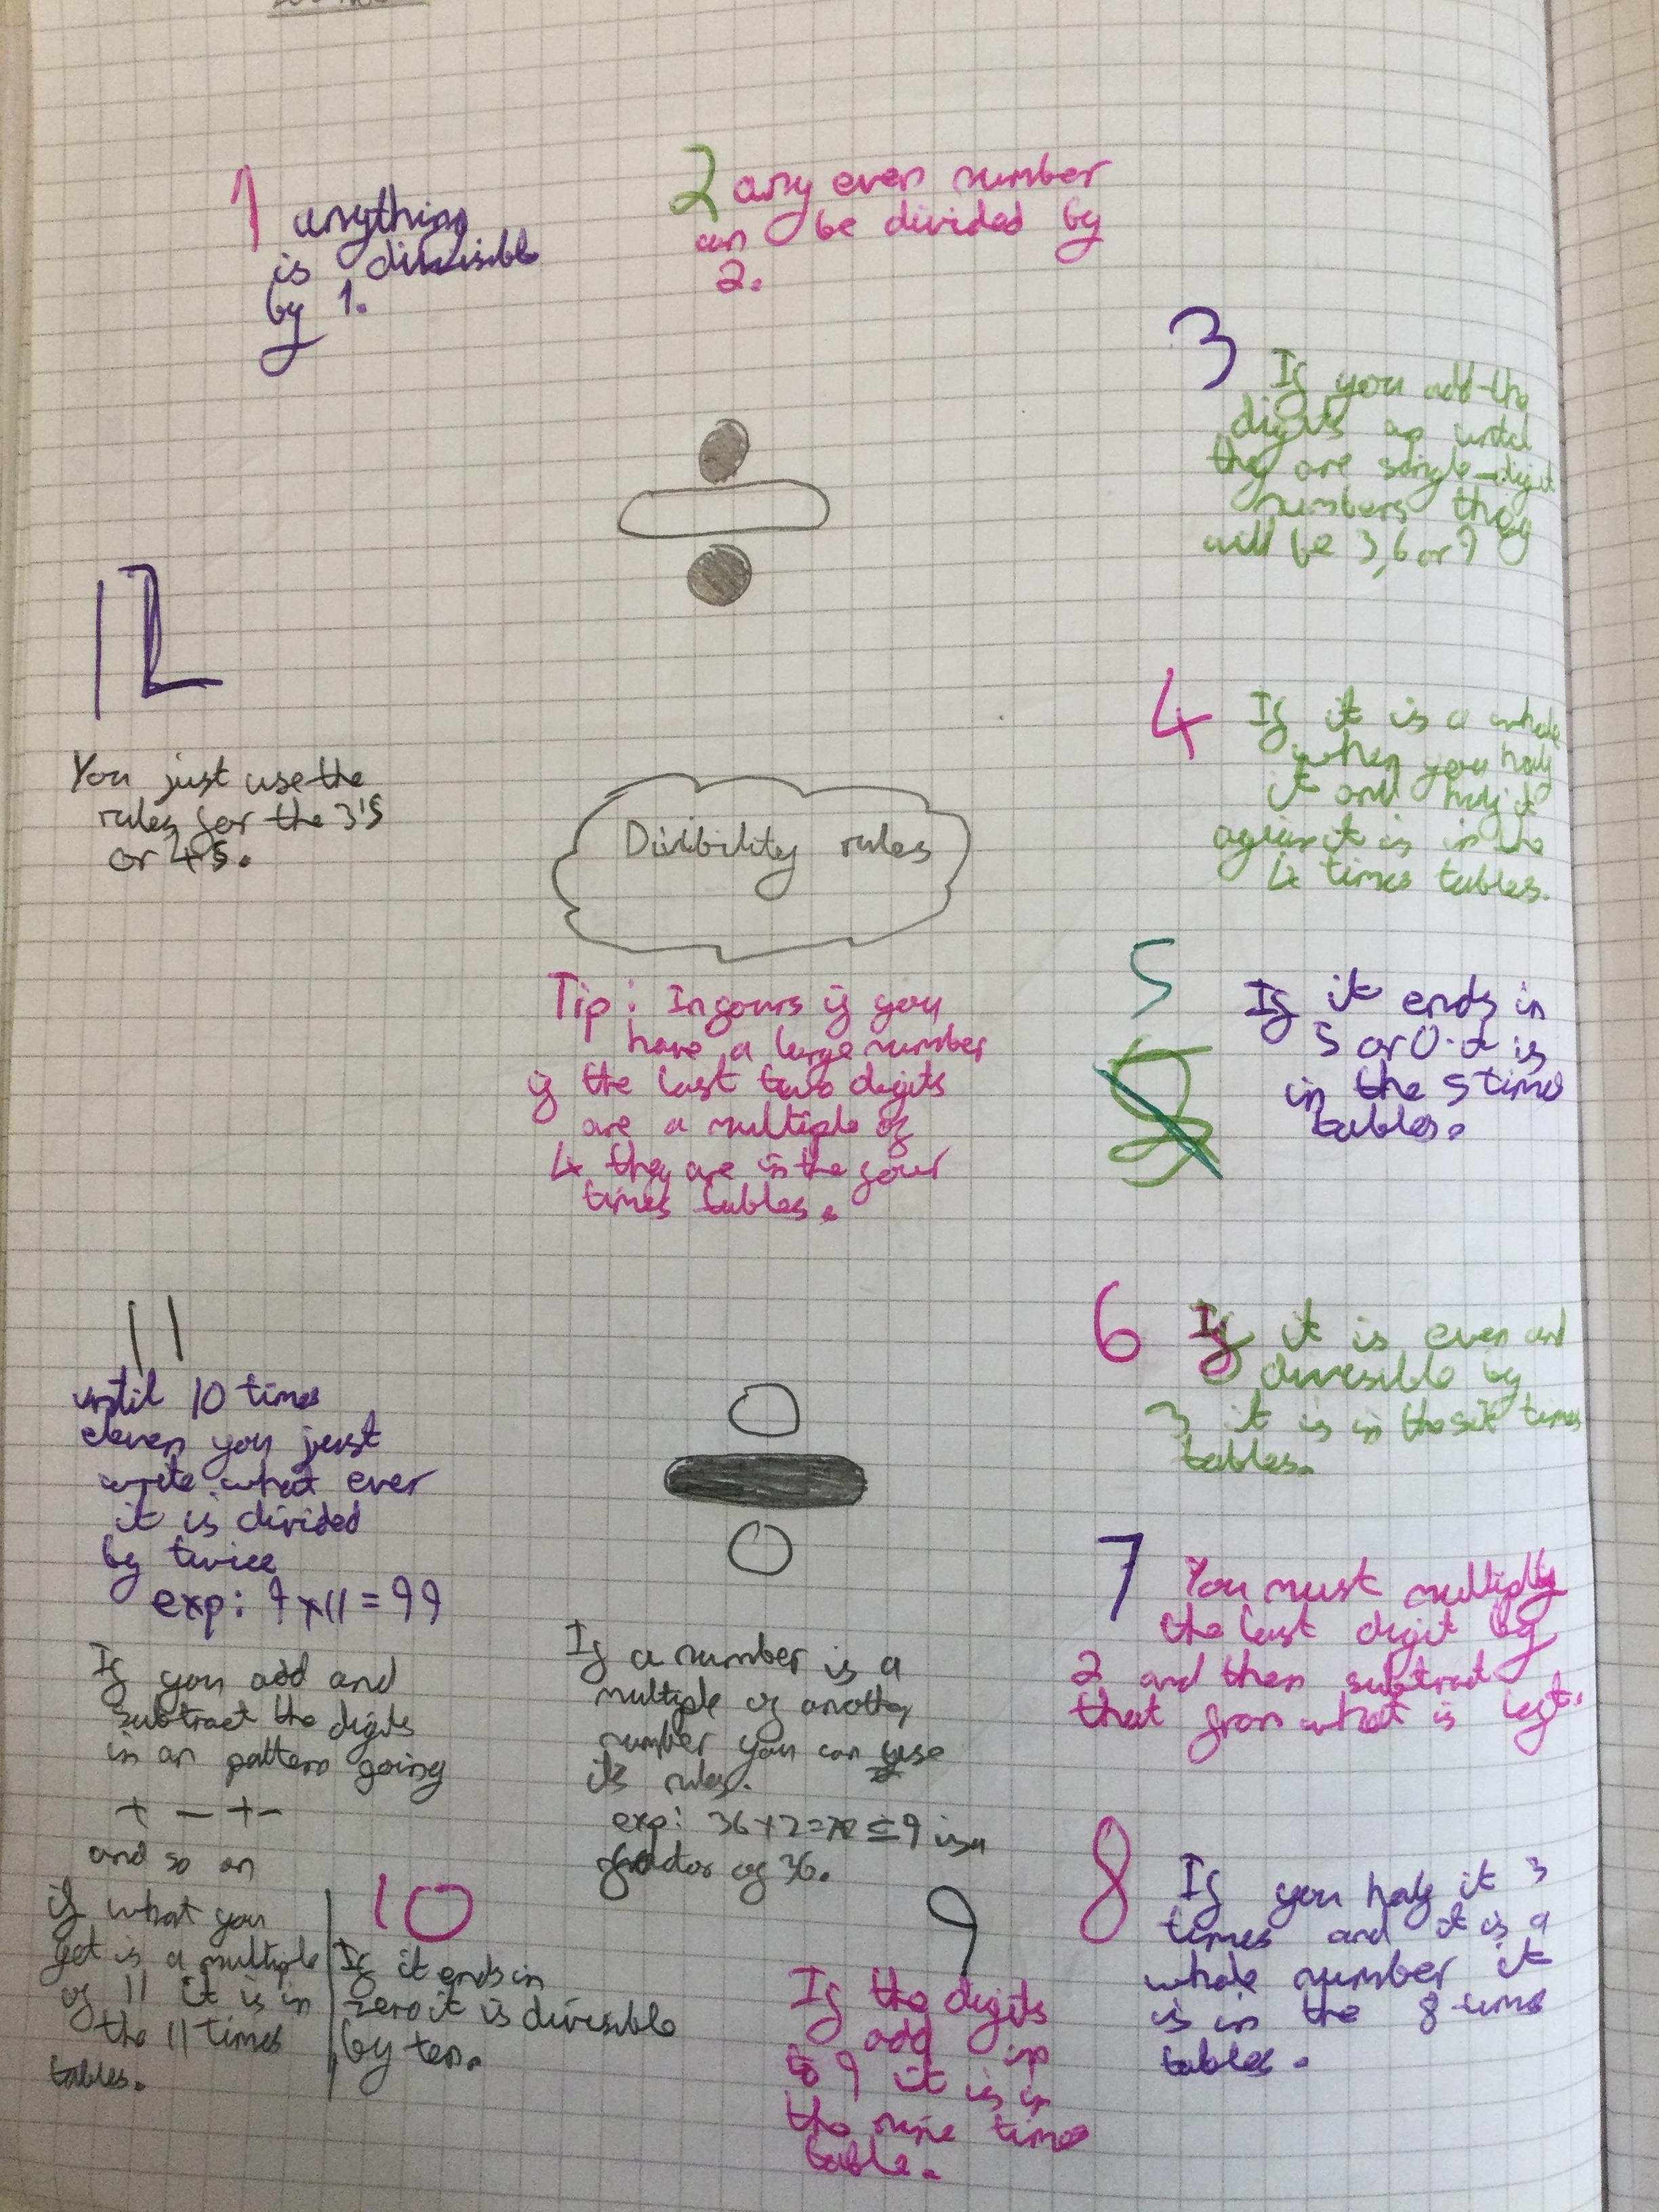 1 anything
is divisible
by 1.
2 any even number
can be divided by
2.
3 If you add the
digits up until
they are single-digit
numbers they
will be 3,6 or 9
4 If it is a whole
when you half
it and half it
again it is in the
4 times tables.
5 If it ends in
5 or 0 it is
in the 5 time
tables.
6 If it is even and
divesible by
3 it is in the six times
tables.
7 You must multiply
the last digit by
2 and then subtract
that from what is left.
8 If you half it 3
times and it is a
whole number it
is in the 8 times
tables.
9
If the digits
add up
to 9 it is in
the nine times
table.
10
If it ends in
zero it is divesible
by ten.
11
until 10 times
eleven you just
write what ever
it is divided
by twice
exp: 9x11=99
If you add and
subtract the digits
in an pattern going
+ - + -
and so on
if what you
get is a multiple
of 11 it is in
the 11 times
tables.
12
You just use the
rules for the 3's
or 4s.
Divibility rules
Tip: In fours if you
have a large number
if the last two digits
are a multiple of
4 they are in the four
times tables.
If a number is a
multiple of another
number you can use
its rules.
exp: 36x2=72 9 is a
factor of 36.